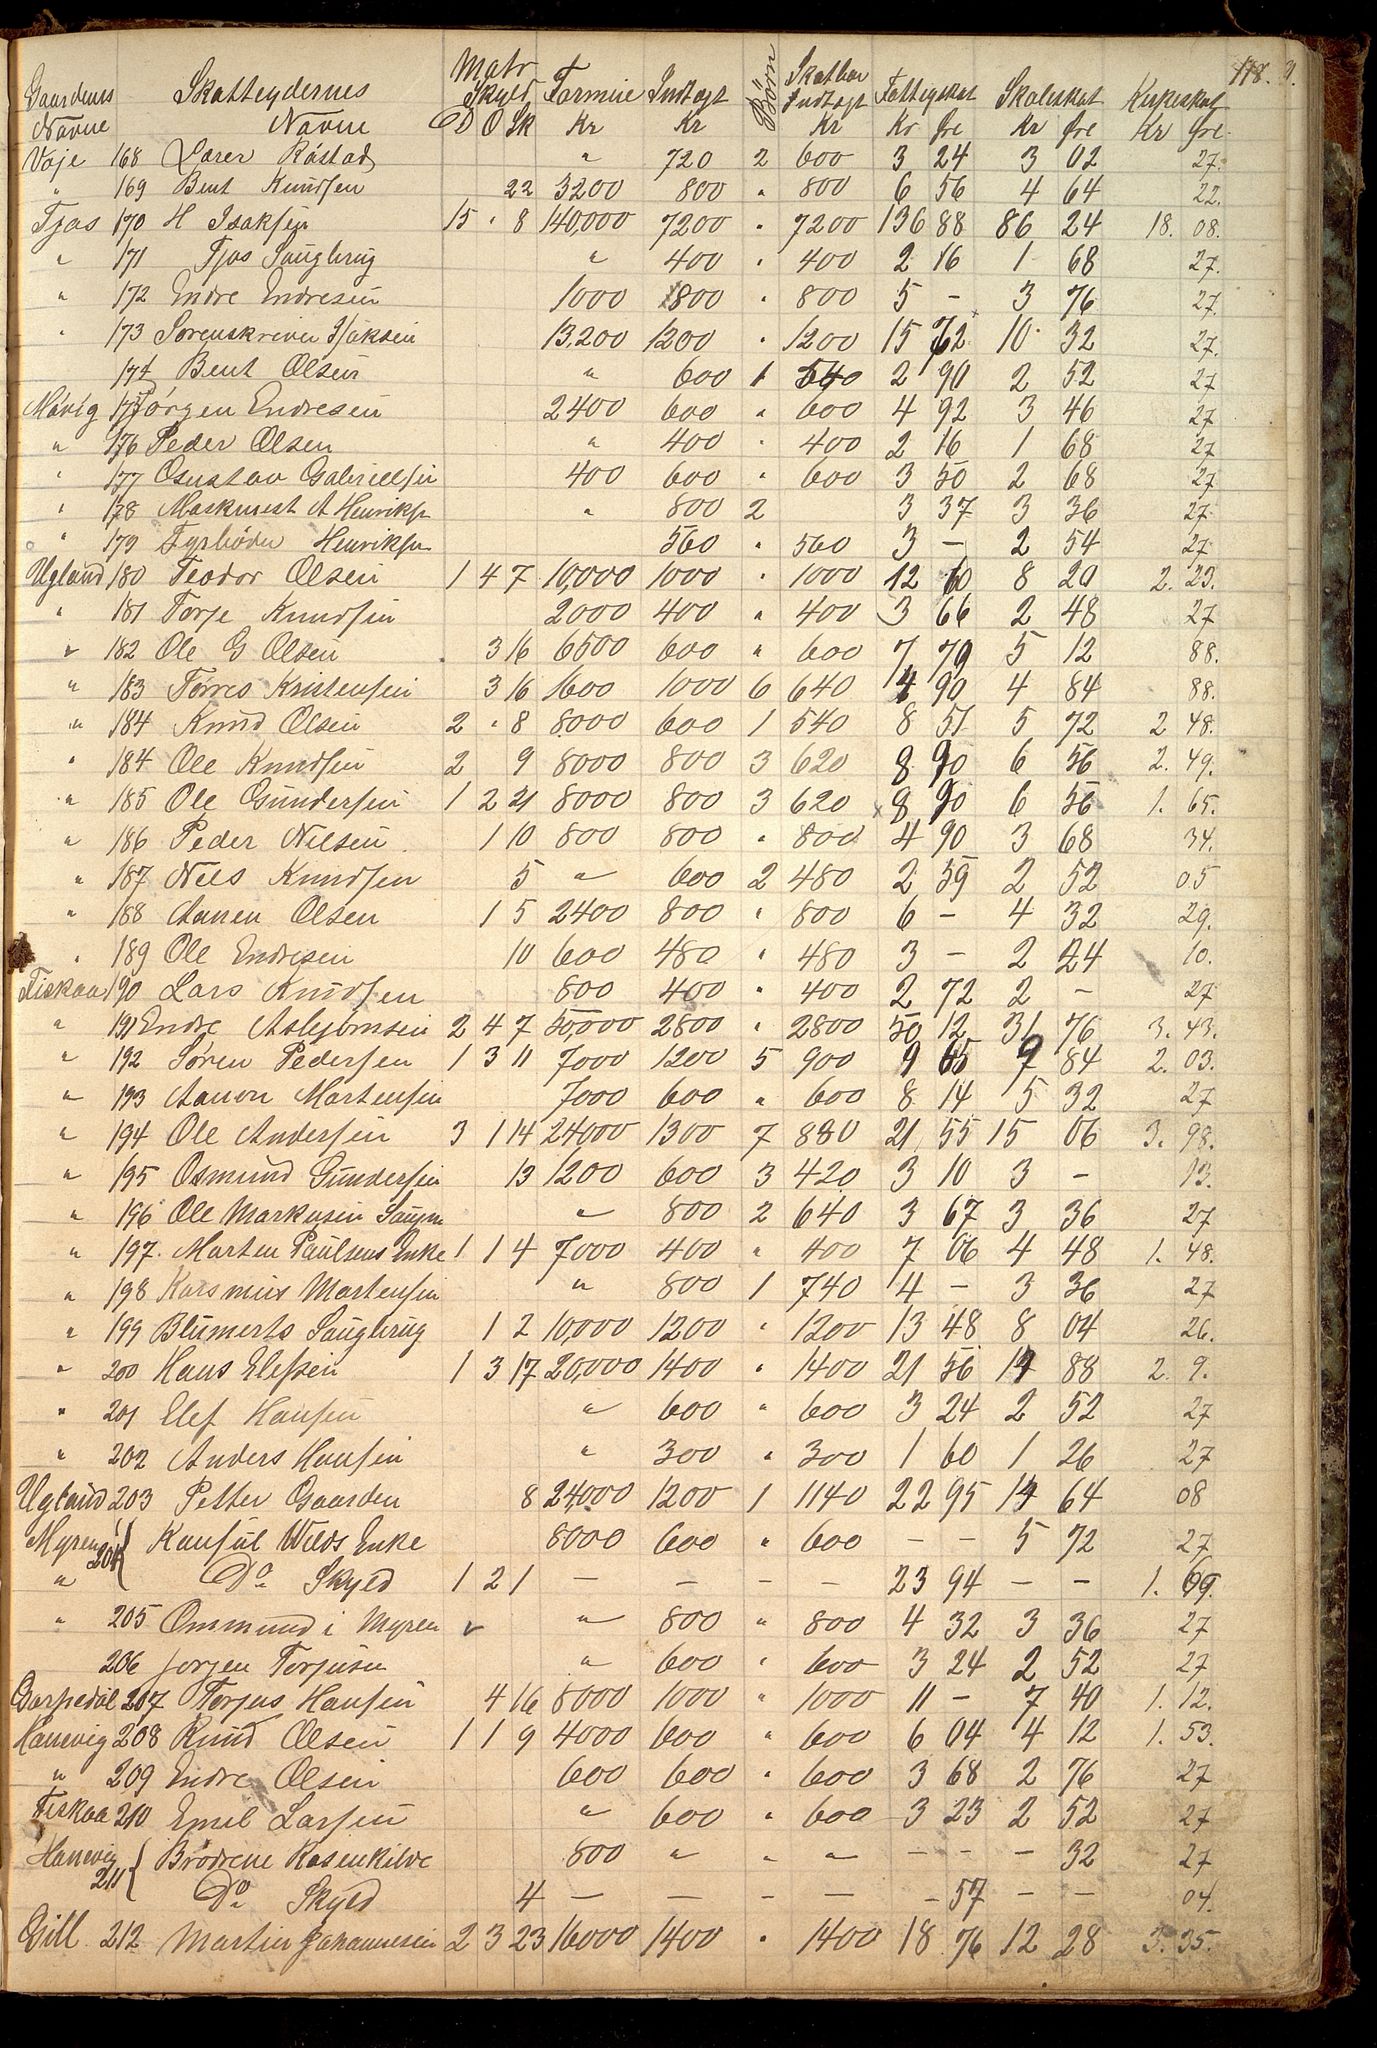 118.
Gaardens Skatteydernes Matr Formue Indtægt Børn Skatbar Fattigskat Skoleskat Kirkeskat
Navne Navne Skyld Indtægt
D O Sk Kr Kr Kr Kr Øre Kr Øre Kr Øre
Voje 168 Lærer Råstad " 720 2 600 3 24 3 02 27.
" 169 Bent Knudsen 22 3200 800 " 800 6 56 4 64 22.
Fjas 170 H Isaksen 15 " 8 140,000 7200 " 7200 136 88 86 24 18. 08.
" 171 Fjas Saugbrug " 400 " 400 2 16 1 68 27.
" 172 Endre Endresen 1000 800 " 800 5 – 3 76 27.
" 173 Sorenskriver Isaksen 13,200 1200 " 1200 15 72 10 32 27.
174 Bent Olsen " 600 1 540 2 90 2 52 27
Måvig 175 Jörgen Endresen 2400 600 " 600 4 92 3 46 27
" 176 Peder Olsen " 400 " 400 2 16 1 68 27
" 177 Gustav Gabrielsen 400 600 " 600 3 50 2 68 27
" 178 Maskmest A Henriksn " 800 2 3 37 3 36 27
" 179 Fyrböder Henriksen 560 " 560 3 – 2 54 27
Ugland 180 Teodor Olsen 1 4 7 10,000 1000 " 1000 12 60 8 20 2. 23.
" 181 Torje Knudsen 2000 400 " 400 3 66 2 48 27
" 182 Ole G Olsen 3 16 6500 600 " 600 7 79 5 12 88.
" 183 Törres Kristensen 3 16 1600 1000 6 640 4 90 4 84 88.
" 184 Knud Olsen 2 " 8 8000 600 1 540 8 51 5 72 2 48.
" 184 Ole Knudsen 2 9 8000 800 3 620 8 90 6 56 2. 49.
" 185 Ole Gundersen 1 2 21 8000 800 3 620 8 90 6 56 1. 65.
" 186 Peder Nilsen 1 10 800 800 " 800 4 90 3 68 34.
" 187 Nils Knudsen 5 " 600 2 480 2 59 2 52 05
" 188 Aanen Olsen 1 5 2400 800 " 800 6 – 4 32 29.
" 189 Ole Endresen 10 600 480 " 480 3 – 2 24 10.
Fiskaa 190 Lars Knudsen 800 400 " 400 2 72 2 – 27
" 191 Endre Asbjörnsen 2 4 7 50,000 2800 " 2800 50 12 31 76 3. 43.
" 192 Sören Pedersen 1 3 11 7000 1200 5 900 9 65 9 84 2. 03.
" 193 Aanon Martensen 7000 600 " 600 8 14 5 32 27
" 194 Ole Andersen 3 1 14 24000 1300 7 880 21 55 15 06 3. 98.
" 195 Osmund Gundersen 13 1200 600 3 420 3 10 3 – 13.
" 196 Ole Markusen Saugm " 800 2 640 3 67 3 36 27
" 197. Morten Paulsens Enke 1 1 4 7000 400 " 400 7 06 4 48 1. 48.
" 198 Rasmus Martensen " 800 1 740 4 – 3 36 27
" 199 Blumerts Saugbrug 1 2 10,000 1200 " 1200 13 48 8 04 26.
" 200 Hans Elefsen 1 3 17 20,000 1400 " 1400 21 56 88 2. 9.
" 201 Elef Hansen " 600 " 600 3 24 2 52 27
" 202 Anders Hansen " 300 " 300 1 60 1 26 27
Ugland 203 Petter Gaarden 8 24,000 1200 1 1140 22 95 14 64 08
Myren 204 { Konsul Wilds Enke 8000 600 " 600 – – 5 72 27
" Do Skyld 1 2 1 – – – – 23 94 – – 1. 69.
" 205 Ommund i Myren " 800 " 800 4 32 3 36 27
206 Jorgen Torjusen " 600 " 600 3 24 2 52 27
Garpedal 207 Torjus Hansen 4 16 8000 1000 " 1000 11 – 7 40 1. 12.
Hanevig 208 Knud Olsen 1 1 9 4000 600 " 600 6 04 4 12 1. 53.
" 209 Endre Olsen 600 600 " 600 3 68 2 76 27
Fiskaa 210 Emil Larsen " 600 " 600 3 23 2 52 27
Hanevig 211 { Brödrene Rosenkilde 800 " " " – – – 32 27
Do Skyld 4 – – – – – 57 – – 04.
Gill 212 Martin Johannesen 2 3 23 16000 1400 " 1400 18 76 12 28 3. 35.